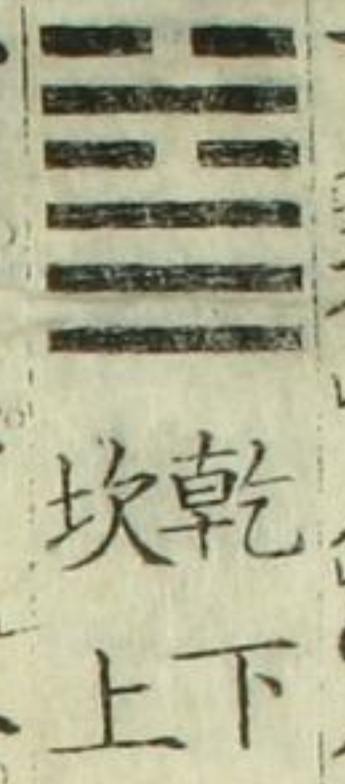 ䷄
乾下
坎上